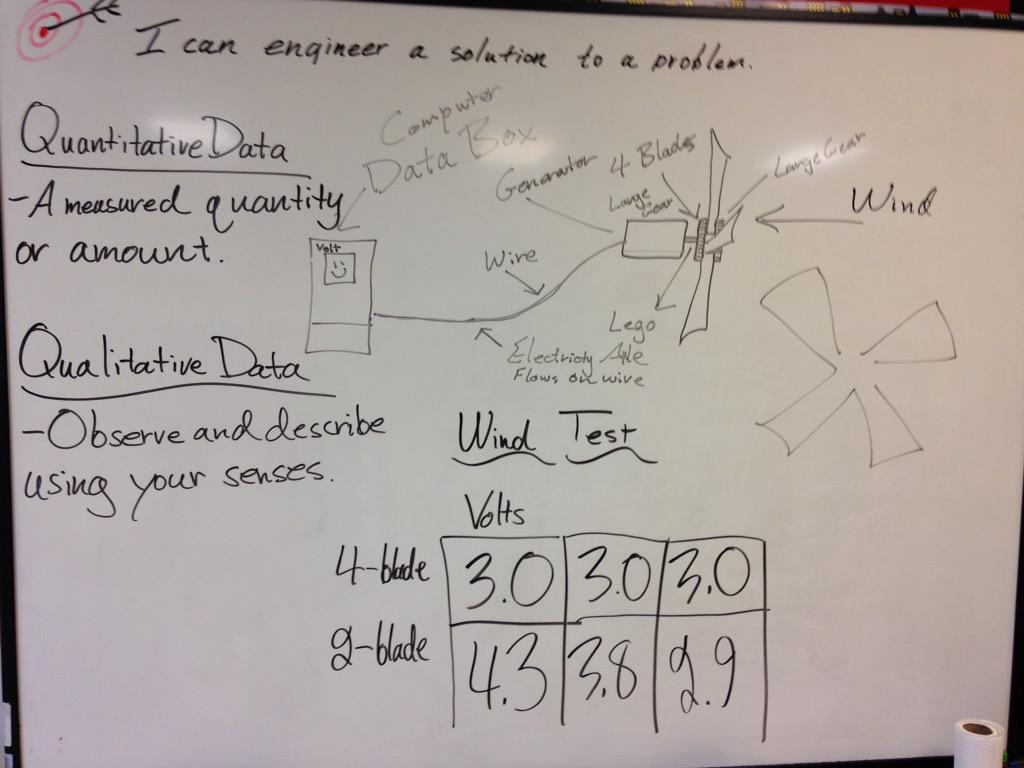 I can engineer a solution to a problem.
Quantitative Data
- A measured quantity
or amount.
Qualitative Data
- Observe and describe
using your senses.
Computer
Data Box
Volt
Generator
4 Blades
Large
Gear
Large Gear
Wind
Wire
Lego
Axle
Electricity
Flows on wire
Wind Test
Volts
4-blade 3.0 3.0 3.0
2-blade 4.3 3.8 2.9